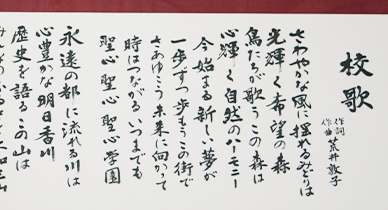 校歌
作詞
作曲 荒井敦子
さわやかな風に揺れるみどりは
光輝く希望の森
鳥たちが歌うこの森は
心輝く自然のハーモニー
今始まる新しい夢が
一歩ずつ歩もうこの街で
さあゆこう未来に向かって
時はつながるいつまでも
聖心聖心聖心学園
永遠の都に流れる川は
心豊かな明日香川
歴史を語るこの山は